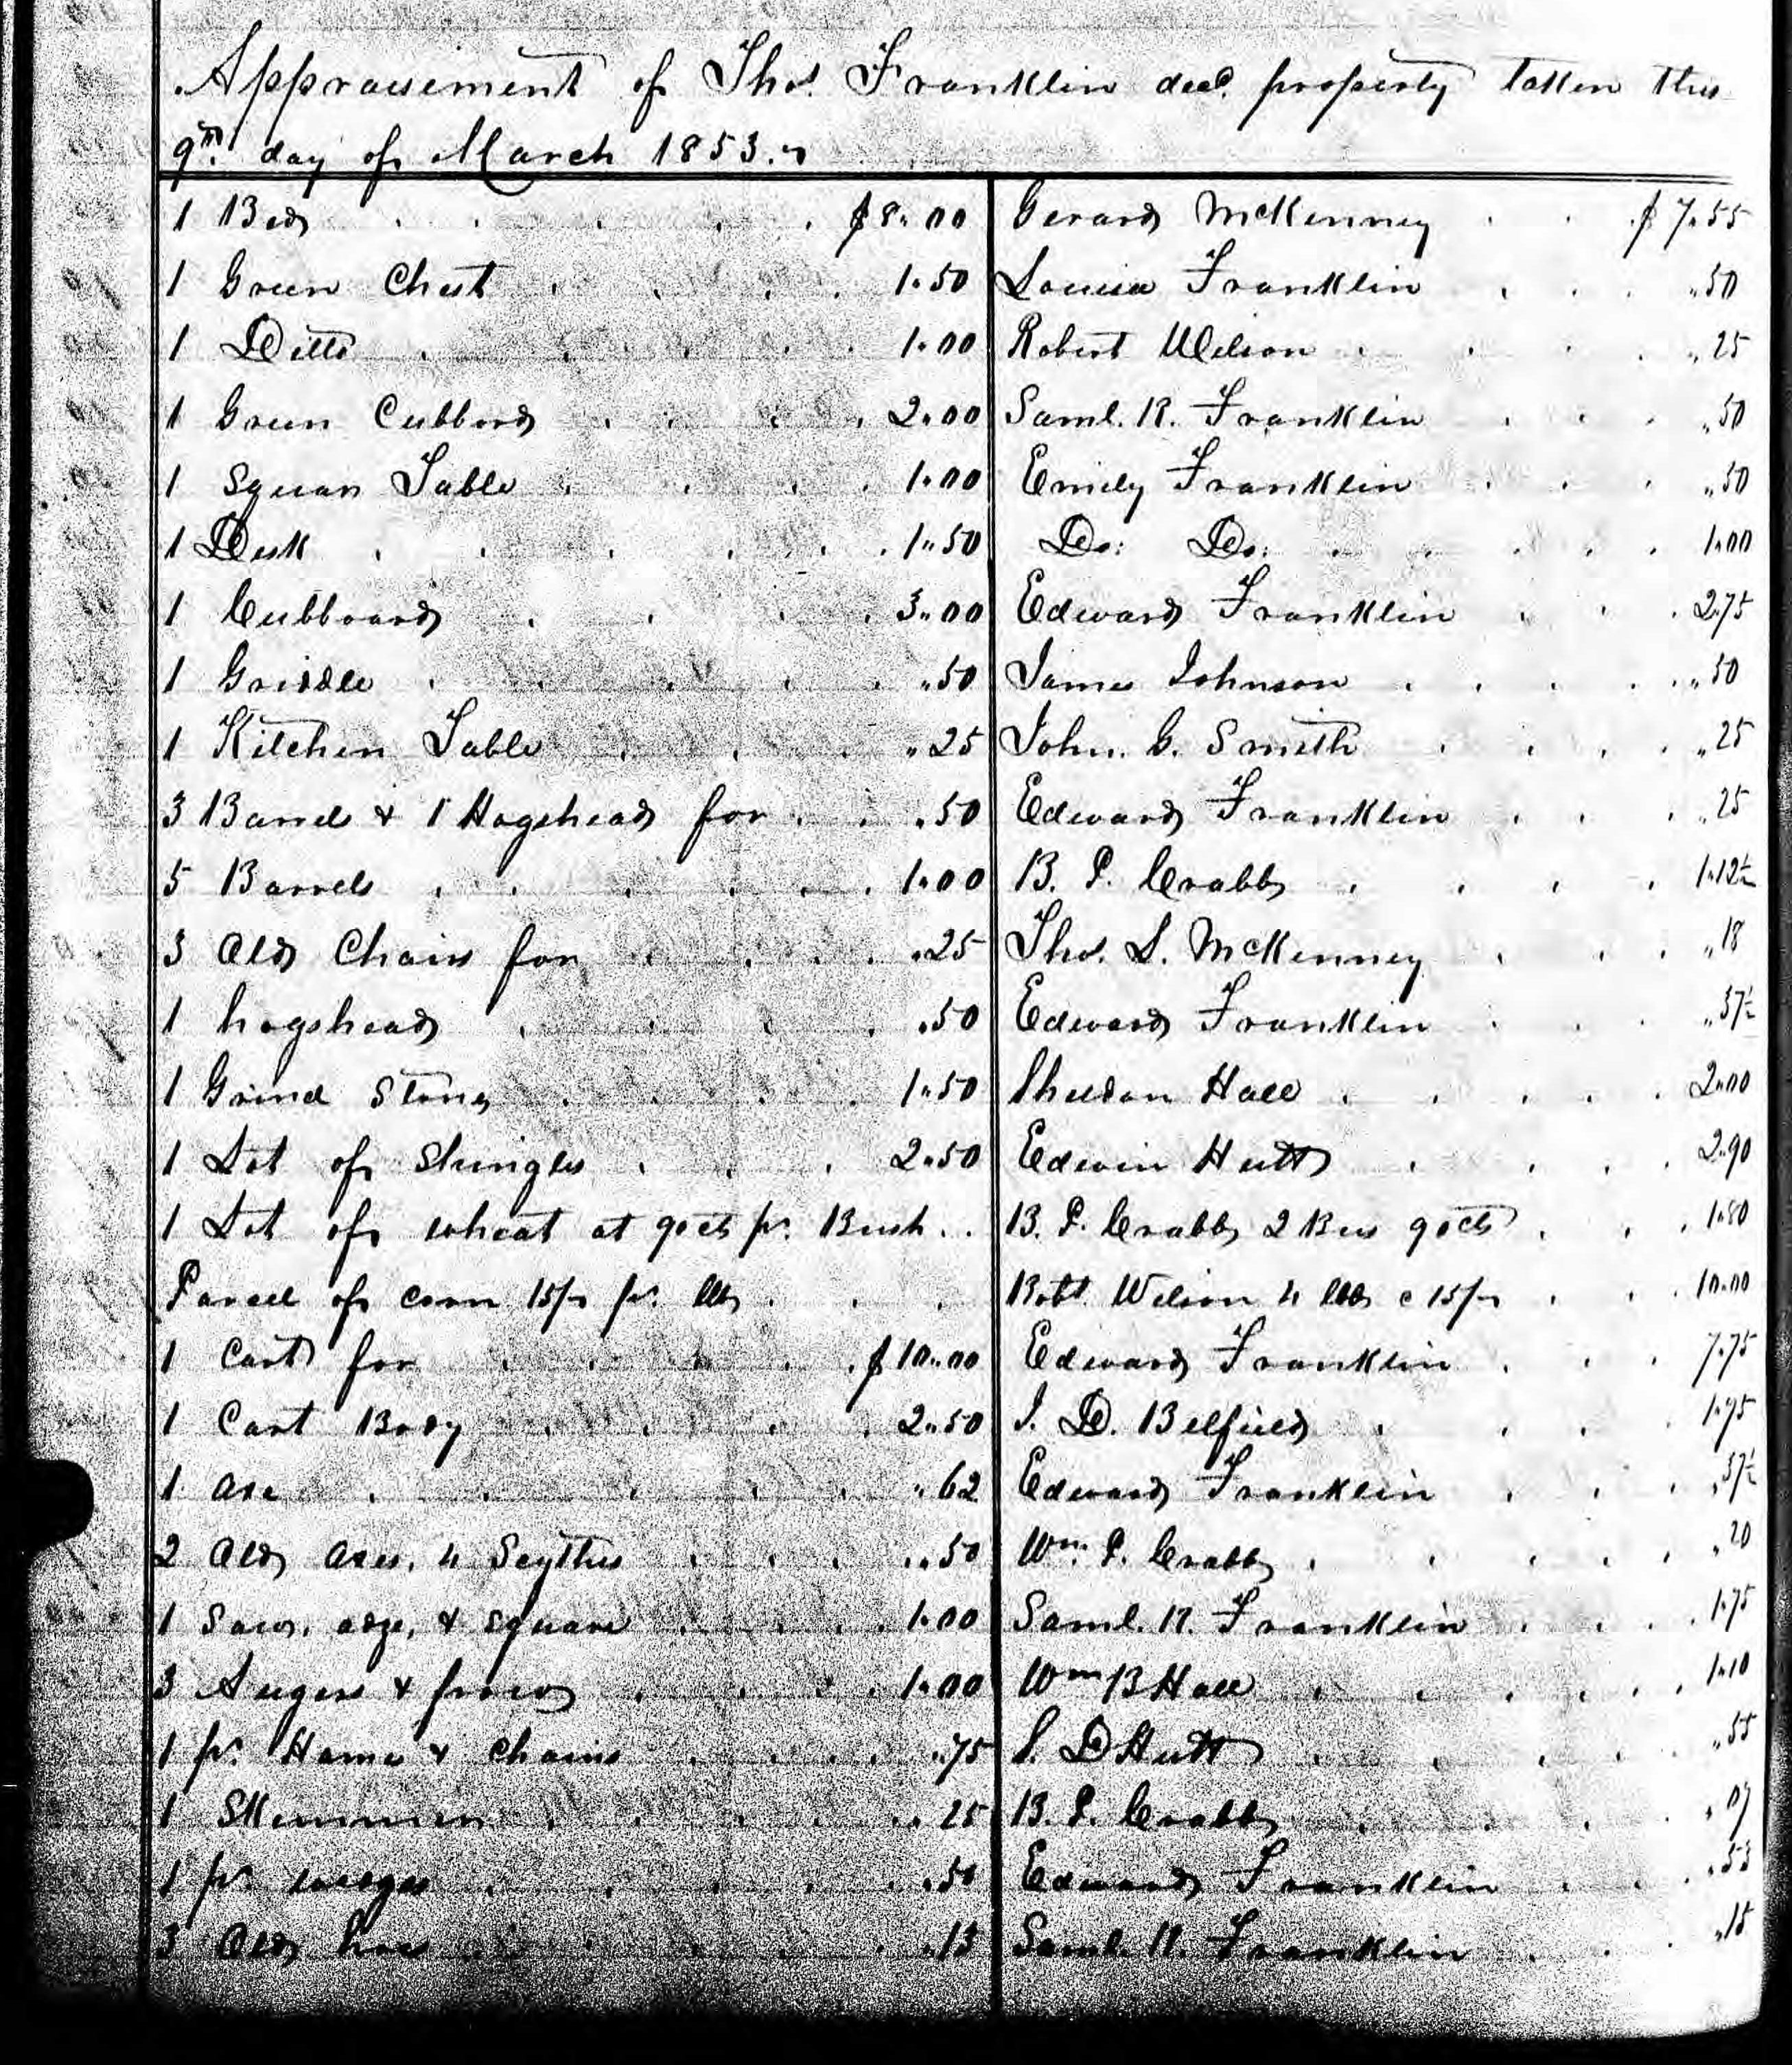 Appraisement of Thos. Franklin decd. property taken this
9th. day of March 1853.
1 Bed $8.00 Gerard McKenney $7.55
1 Green Chest 1.50 Louisa Franklin .50
1 Ditto 1.00 Robert Wilson .25
1 Green Cubbord 2.00 Saml. R. Franklin .50
1 Square Table 1.00 Emily Franklin .50
1 Desk 1.50 Do: Do: 1.00
1 Cubboard 3.00 Edward Franklin 2.75
1 Griddle .50 James Johnson .50
1 Kitchen Table .25 John. G. Smith .25
3 Barrels & 1 Hogshead for .50 Edward Franklin .25
5 Barrels 1.00 B. P. Crabb 1.12½
3 Old Chairs for .25 Thos. S. McKenney .18
1 hogshead .50 Edward Franklin .37½
1 Grind Stone 1.50 Sheldon Hall 2.00
1 Lot of Shingles 2.50 Edwin Hutt 2.90
1 Lot of wheat at 90cts pr. Bush.. B. P. Crabb 2 Bus 90cts 1.80
Parcel of corn 15/ pr. bbl Robt. Wilson 4 bbls @ 15/ 10.00
1 Cart for $10.00 Edward Franklin 7.75
1 Cart Body 2.50 J. D. Belfield 1.95
1 axe .62 Edward Franklin .37½
2 Old axes, 4 Scythes .50 Wm. P. Crabb .20
1 Saw, adze, & square 1.00 Saml. R. Franklin 1.75
3 Augers & frow 1.00 Wm B Hall 1.10
1 pr. Hame & chains .75 S. D Hutt .55
1 Skimmer .25 B. P. Crabb
1 pr. wedges .50 Edward Franklin .53
3 Old hoes .13 Saml. R. Franklin .15